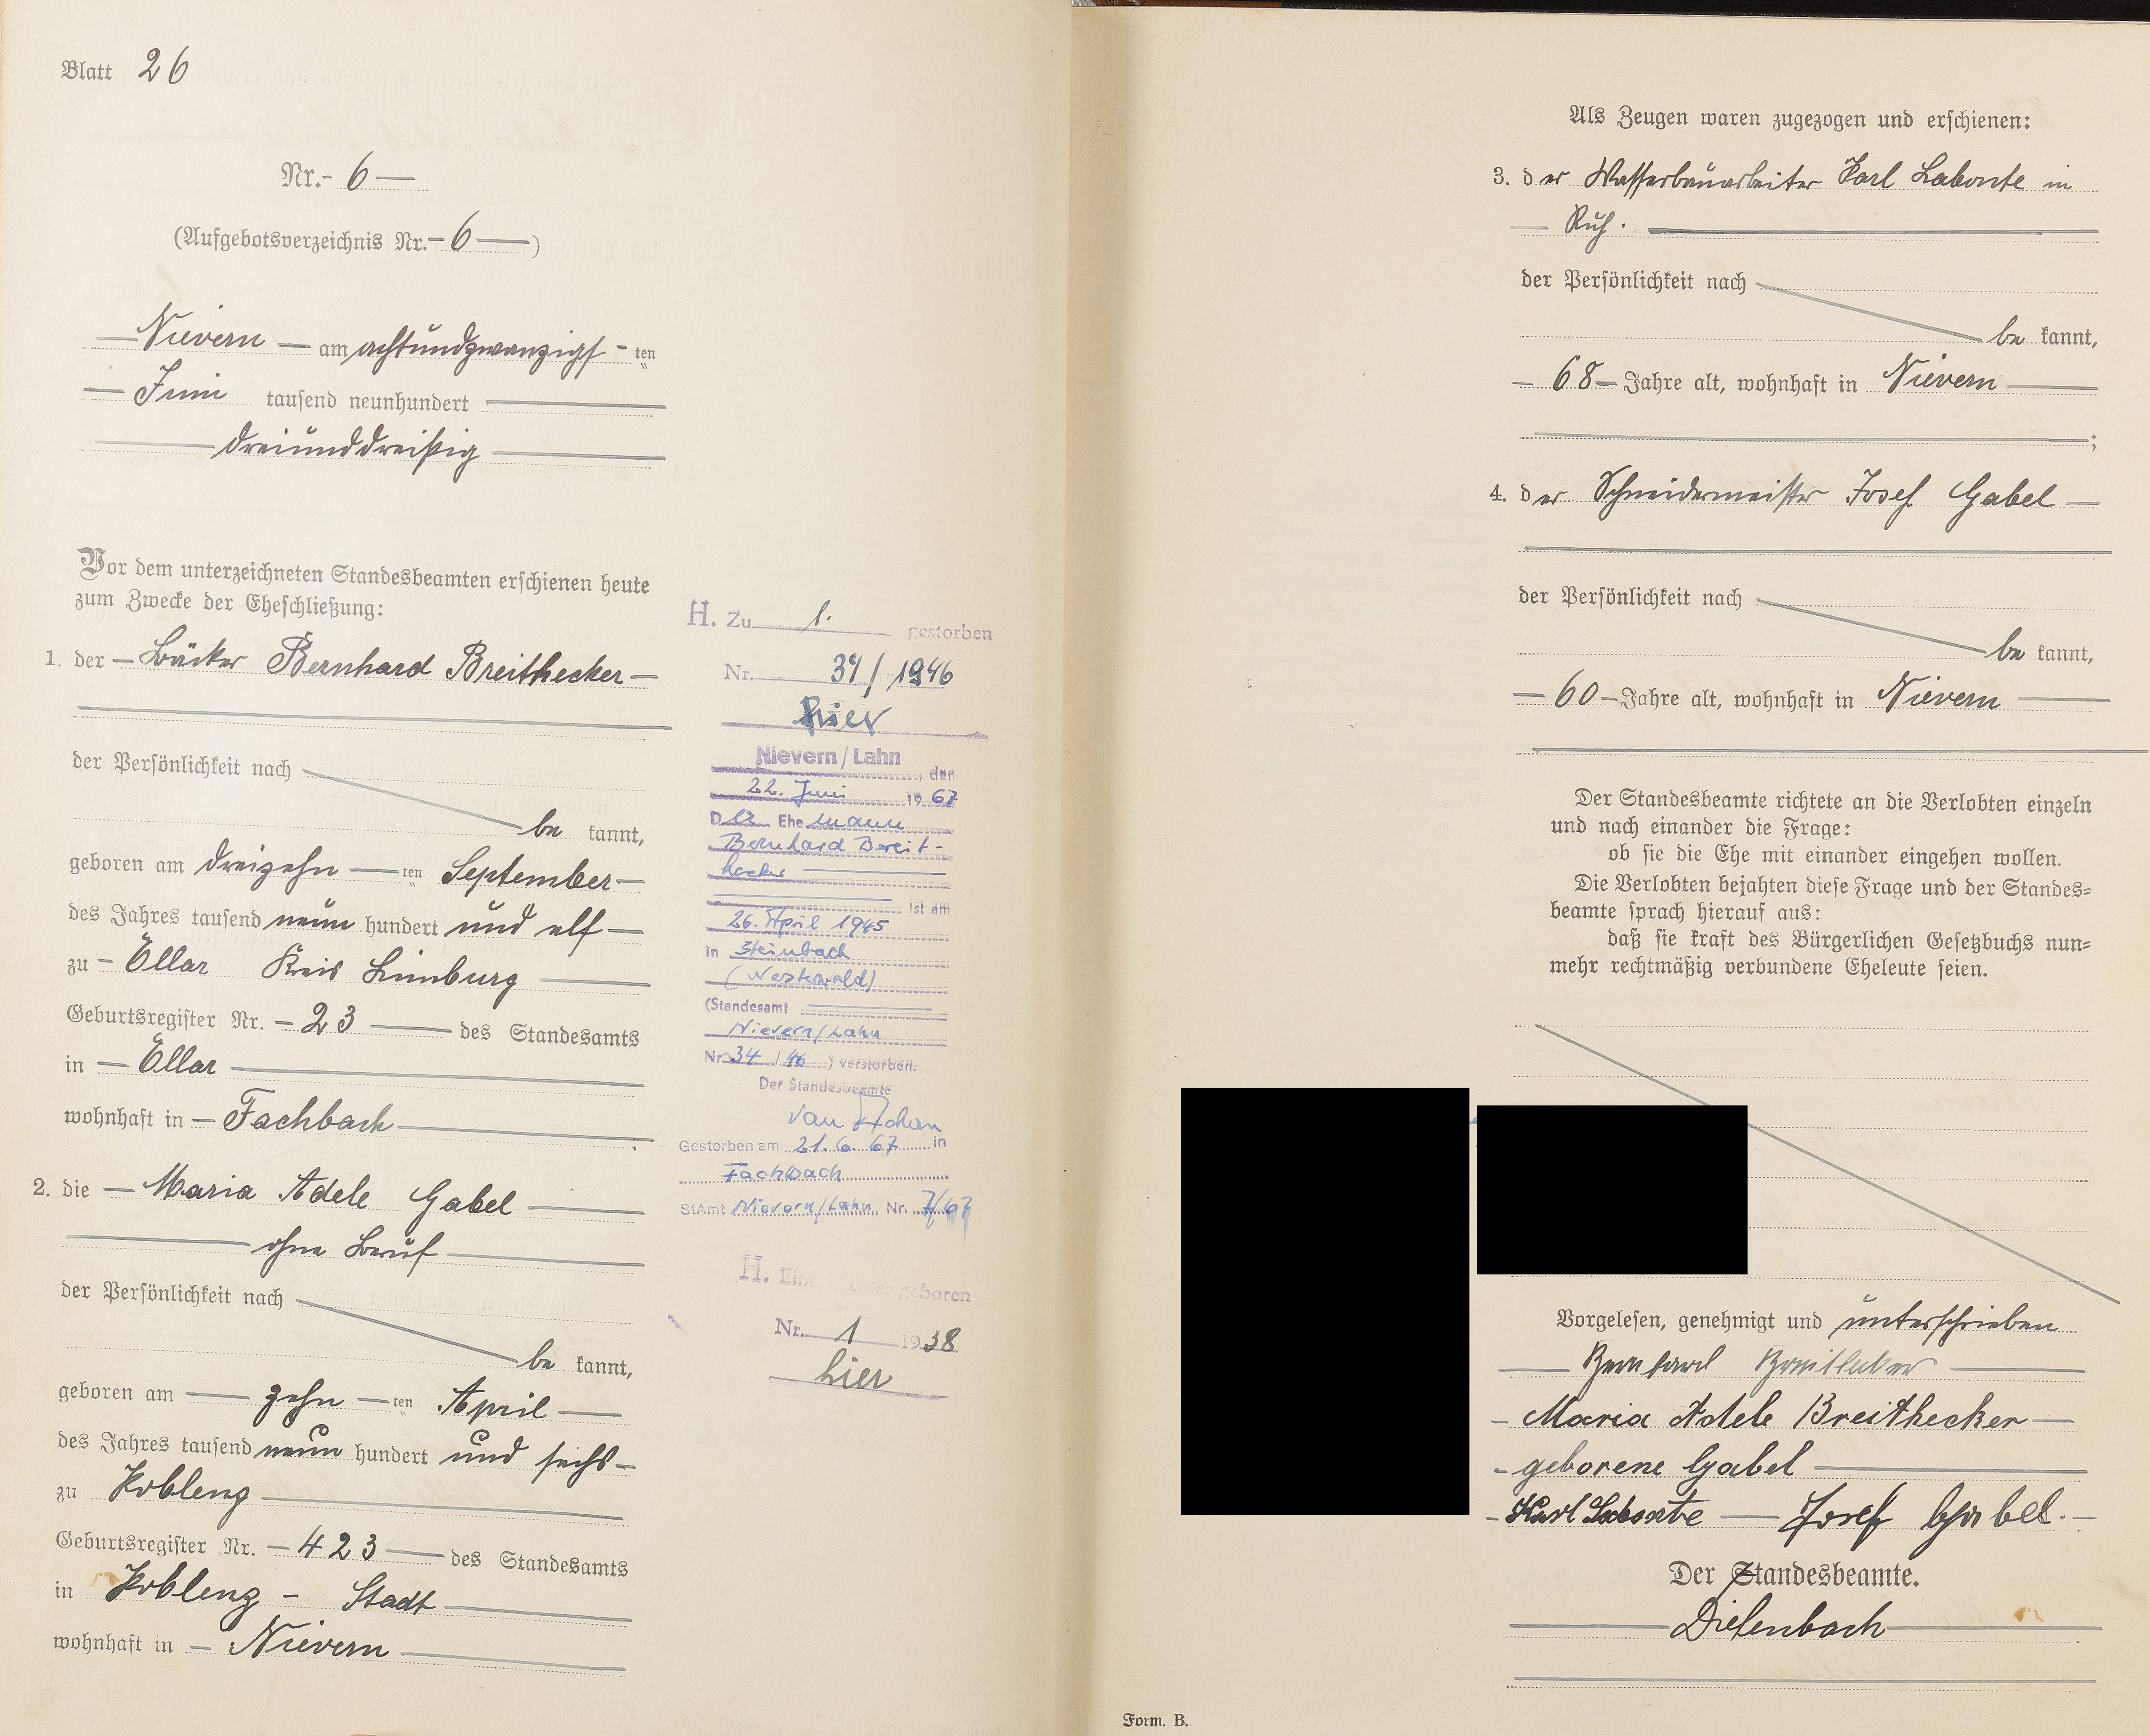 Blatt 26
Nr. 6
(Aufgebotsverzeichnis Nr. 6)
Nievern am achtundzwanzigsten
Juni tausend neunhundert
dreiunddreißig
Vor dem unterzeichneten Standesbeamten erschienen heute
zum Zwecke der Eheschließung:
1. der Bäcker Bernhard Breithecker
der Persönlichkeit nach
be kannt,
geboren am dreizehn ten September
des Jahres tausend neun hundert und elf
zu Ellar Kreis Limburg
Geburtsregister Nr. 23 des Standesamts
in Ellar
wohnhaft in Fachbach ;
2. die Maria Adele Gabel
ohne Beruf
der Persönlichkeit nach
be kannt,
geboren am zehn ten April
des Jahres tausend neun hundert und sechs
zu Koblenz
Geburtsregister Nr. 423 des Standesamts
in Koblenz - Stadt
wohnhaft in Nievern
H. Zu 1. gestorben
Nr. 34/1946
hier
Nievern/Lahn, den
22. Juni 1967
Der Ehemann
Bernhard Breit-
hecker
ist am
26. April 1945
in Steinbach
(Westerwald)
(Standesamt
Nievern/Lahn
Nr. 34 / 46 ) verstorben.
Der Standesbeamte
Gestorben am 21.6.67 in
Fachbach
StAmt Nievern/Lahn Nr. 7/67
H. Eine geboren
Nr. 1 1938
hier
Als Zeugen waren zugezogen und erschienen:
3. der Wasserbauarbeiter Karl Labonte in
Ruh.
der Persönlichkeit nach
be kannt,
68 Jahre alt, wohnhaft in Nievern
;
4. der Schneidermeister Josef Gabel
der Persönlichkeit nach
be kannt,
60 Jahre alt, wohnhaft in Nievern
Der Standesbeamte richtete an die Verlobten einzeln
und nach einander die Frage:
ob sie die Ehe mit einander eingehen wollen.
Die Verlobten bejahten diese Frage und der Standes=
beamte sprach hierauf aus:
daß sie kraft des Bürgerlichen Gesetzbuchs nun=
mehr rechtmäßig verbundene Eheleute seien.
Vorgelesen, genehmigt und unterschrieben
Bernhard Breithecker
Maria Adele Breithecker
geborene Gabel
Karl Labonte — Josef Gabel.
Der Standesbeamte.
Form. B.